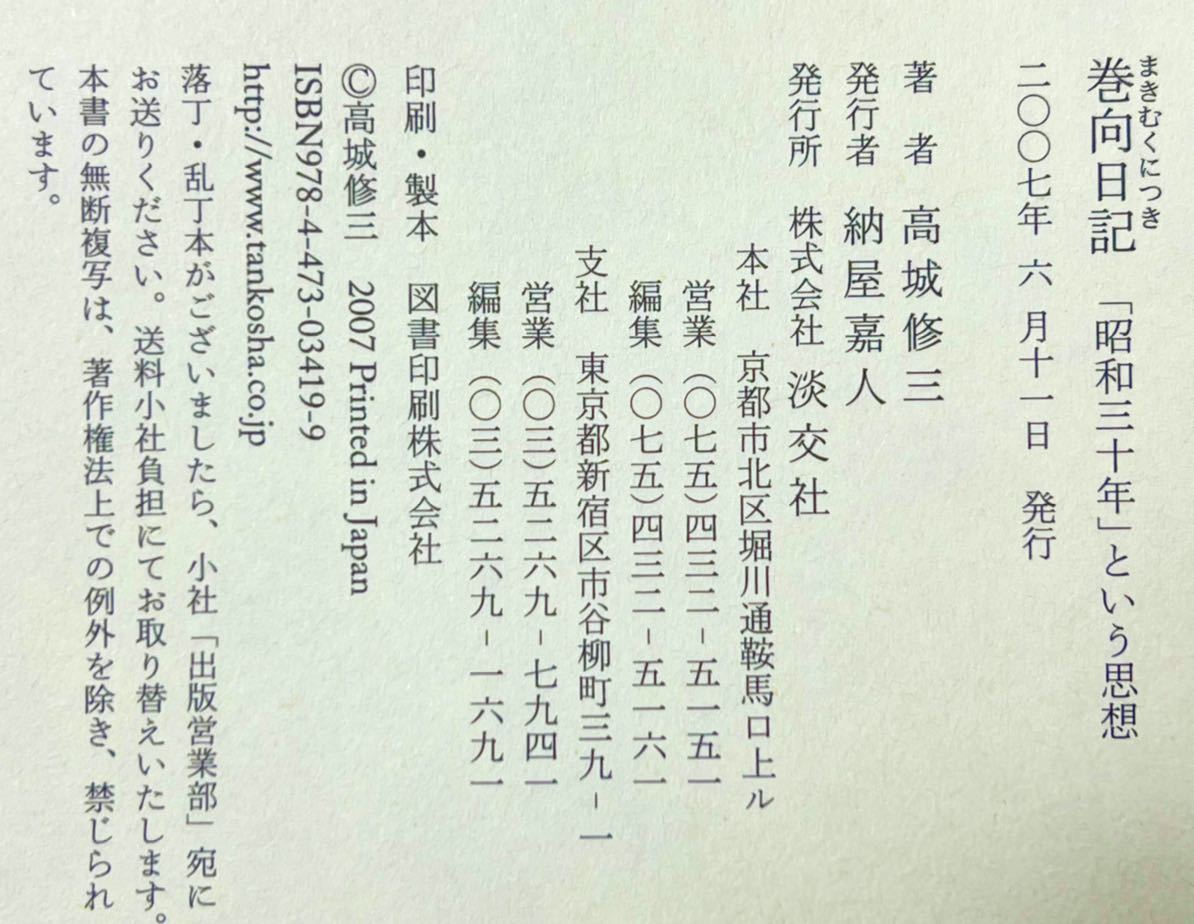 まきむくにつき
巻向日記 「昭和三十年」という思想
二〇〇七年 六 月十一日 発行
著 者 高城修三
発行者 納屋嘉人
発行所 株式会社 淡交社
本社 京都市北区堀川通鞍馬口上ル
営業 (〇七五)四三二-五一五一
編集 (〇七五)四三二-五一六一
支社 東京都新宿区市谷柳町三九-一
営業 (〇三)五二六九-七九四一
編集 (〇三)五二六九-一六九一
印刷・製本 図書印刷株式会社
©高城修三 2007 Printed in Japan
ISBN978-4-473-03419-9
http://www.tankosha.co.jp
落丁・乱丁本がございましたら、小社「出版営業部」宛に
お送りください。送料小社負担にてお取り替えいたします。
本書の無断複写は、著作権法上での例外を除き、禁じられ
ています。